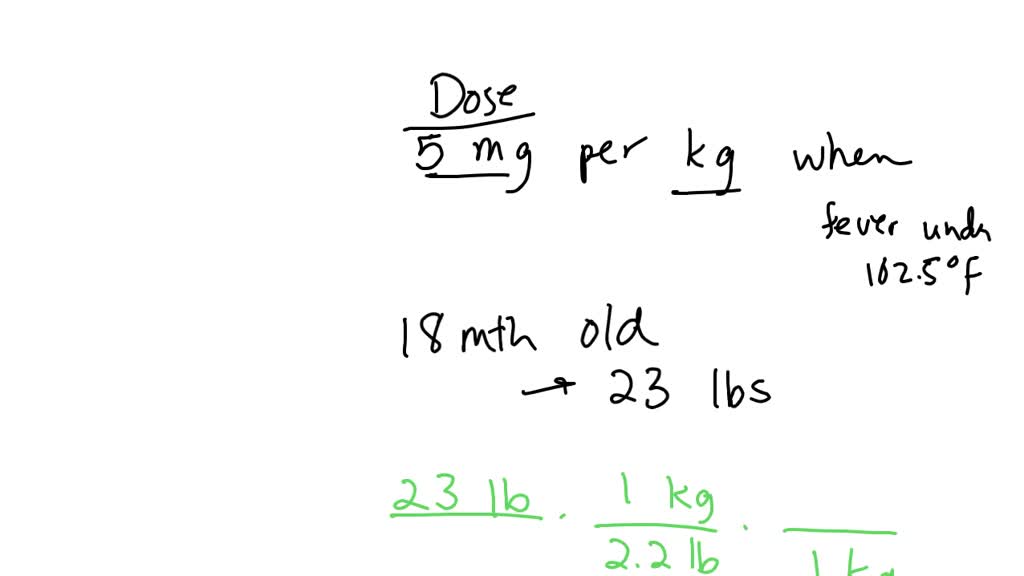 Dose
5 mg per kg when
fever undr
102.5°F
18 mth old
→ 23 lbs
23 lb · 1 kg ·
2.2 lb 1 kg